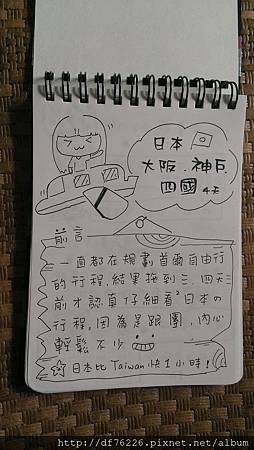 日本
大阪.神戶
四國 4天
前言
一直都在規劃首爾自由行
的行程,結果拖到三.四天
前才認真仔細看日本の
行程,因為是跟團,內心
輕鬆不少
☆日本比Taiwan快1小時!
http://df76226.pixnet.net/album